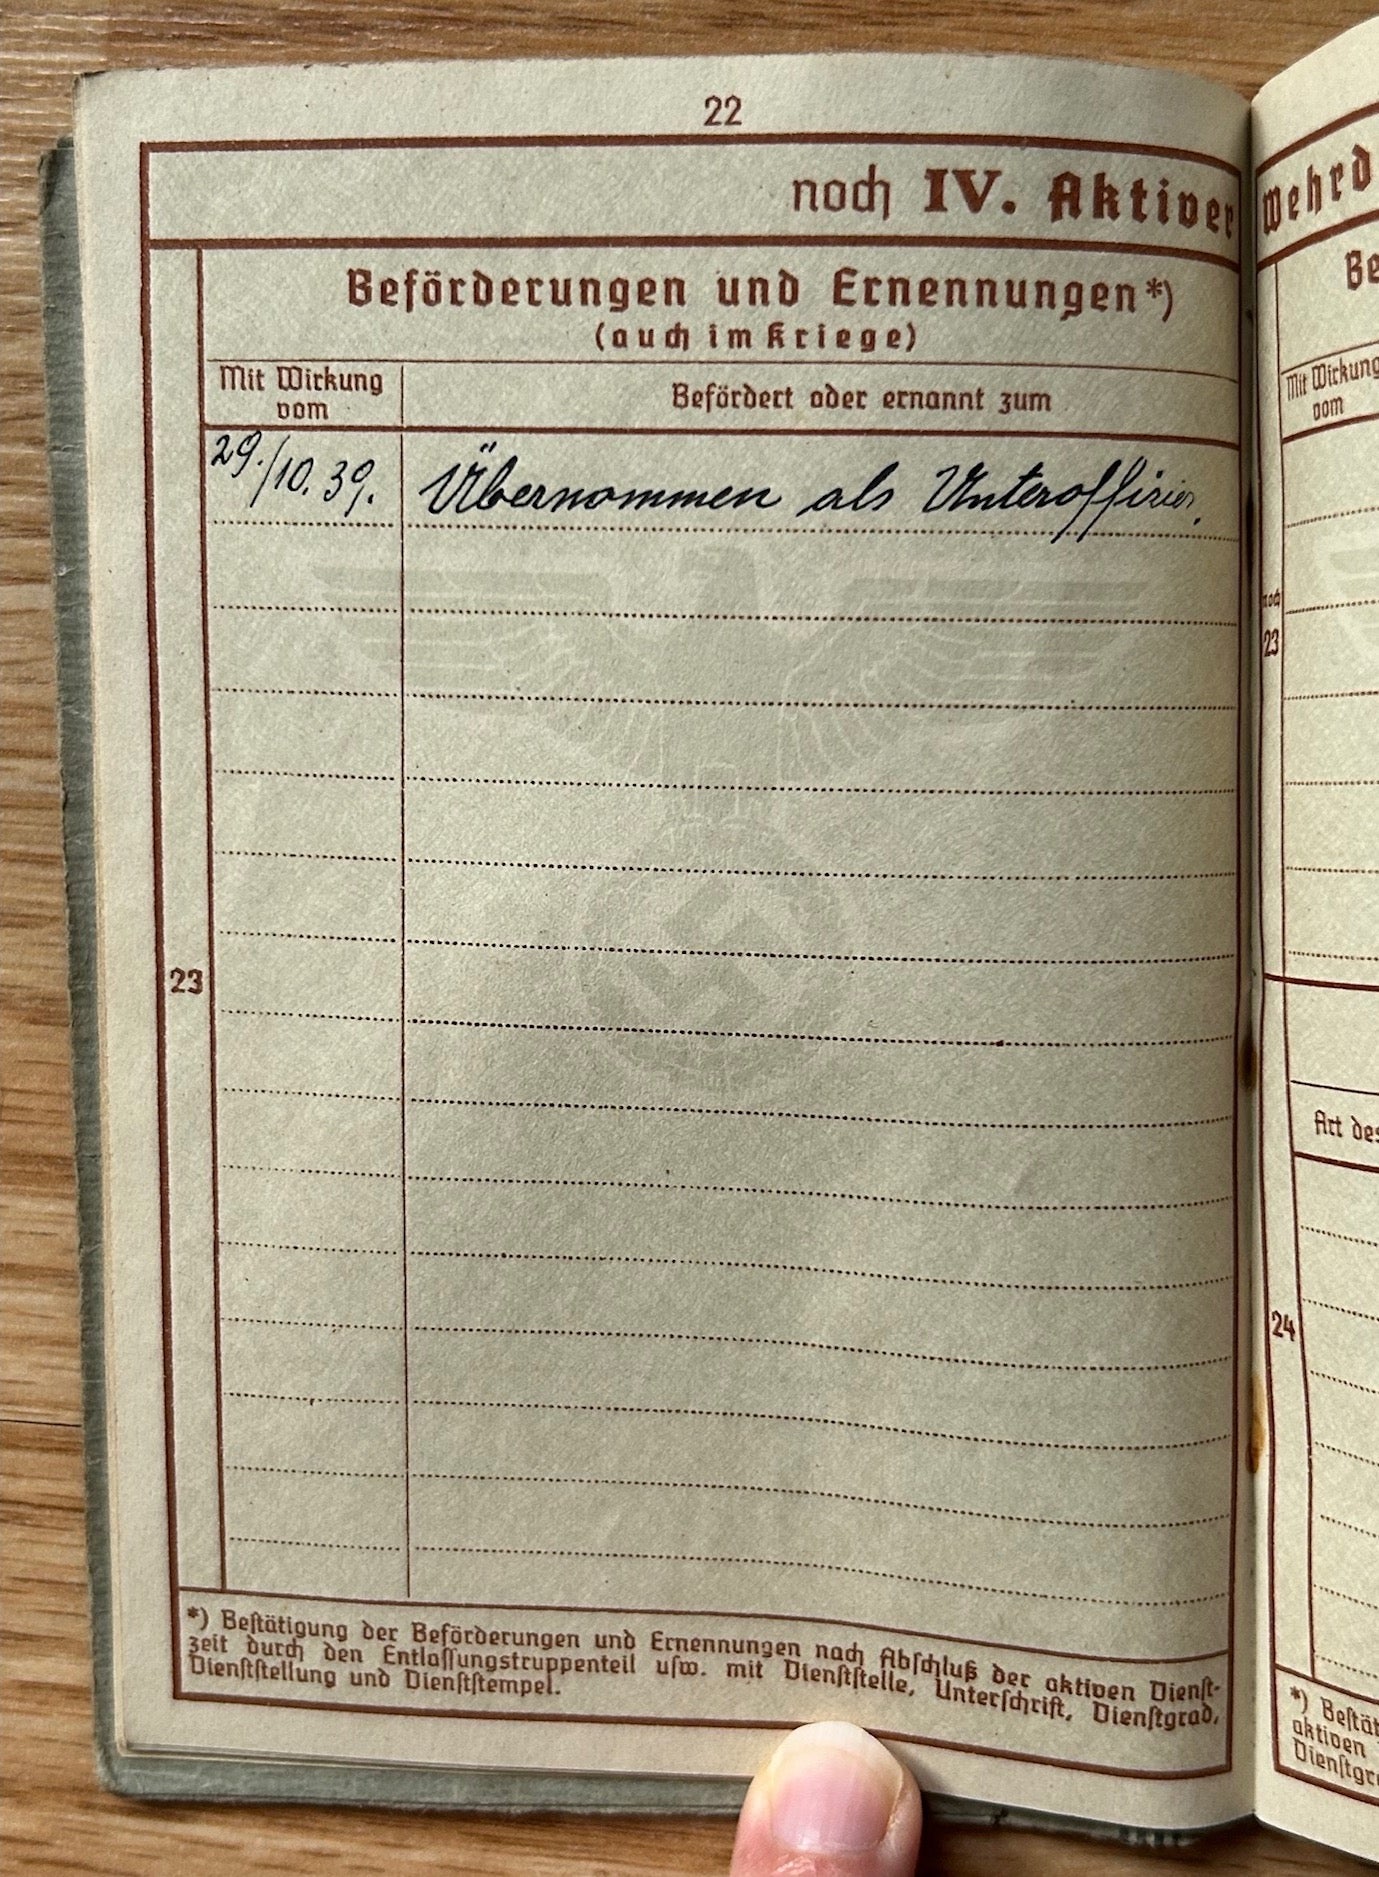 22
noch IV. Aktiver
Beförderungen und Ernennungen*)
(auch im Kriege)
Mit Wirkung vom
Befördert oder ernannt zum
29./10. 39. Übernommen als Unteroffizier.
23
*) Bestätigung der Beförderungen und Ernennungen nach Abschluß der aktiven Dienst-
zeit durch den Entlassungstruppenteil usw. mit Dienststelle, Unterschrift, Dienstgrad,
Dienststellung und Dienststempel.
Wehrd
Be
Mit Wirkung
vom
noch
23
Art des
24
*) Bestät
aktiven
Dienstgr